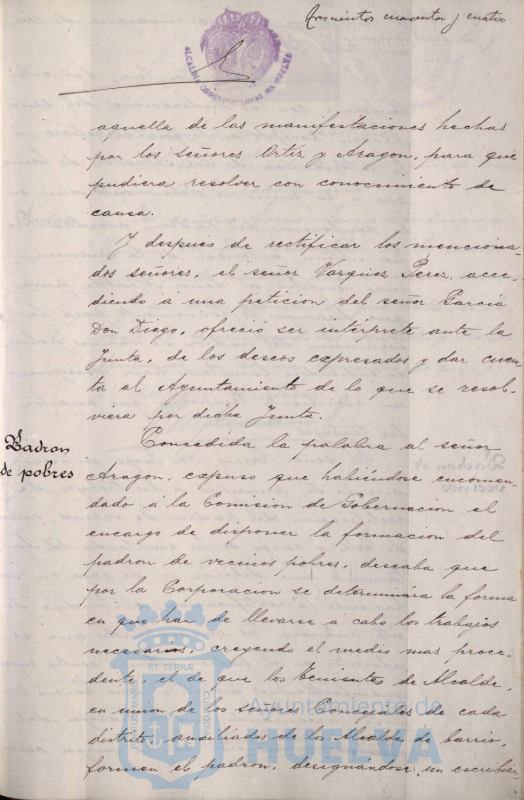 Trescientos cuarenta y cuatro
ALCALDIA CONSTITUCIONAL DE HUELVA
aquella de las manifestaciones hechas
por los señores Ortíz y Aragon, para que
pudiera resolver con conocimiento de
causa.
Y despues de rectificar los menciona-
dos señores, el señor Vazquez Perez, acce-
diendo á una peticion del señor García
Don Diego, ofreció ser intérprete ante la
Junta, de los deseos expresados y dar cuen-
ta al Ayuntamiento de lo que se resol-
viera por dicha Junta.
Padron
de pobres
Concedida la palabra al señor
Aragon, expuso que habiéndose encomen-
dado á la Comision de Gobernacion el
encargo de disponer la formacion del
padron de vecinos pobres, deseaba que
por la Corporacion se determinára la forma
en que han de llevarse á cabo los trabajos
necesarios, creyendo el medio mas proce-
dente, el de que los Tenientes de Alcalde,
en union de los señores Concejales de cada
distrito, auxiliados de los Alcaldes de barrio,
formen el padron, designándose un escribien-
ET TERRÆ
Ayuntamiento de
HUELVA